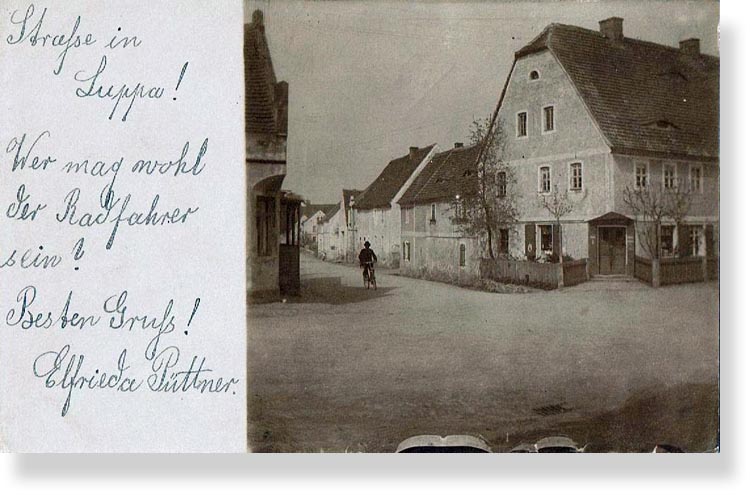 Straße in
Luppa!
Wer mag wohl
der Radfahrer
sein?
Besten Gruß!
Elfrieda Püttner.